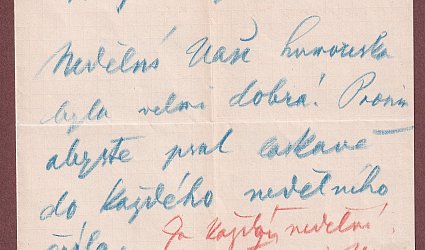 Nedělní Vaše humoreska
byla velmi dobrá! Prosím
abyste psal laskavě
do každého nedělního
čísla
Ja každý neděli!